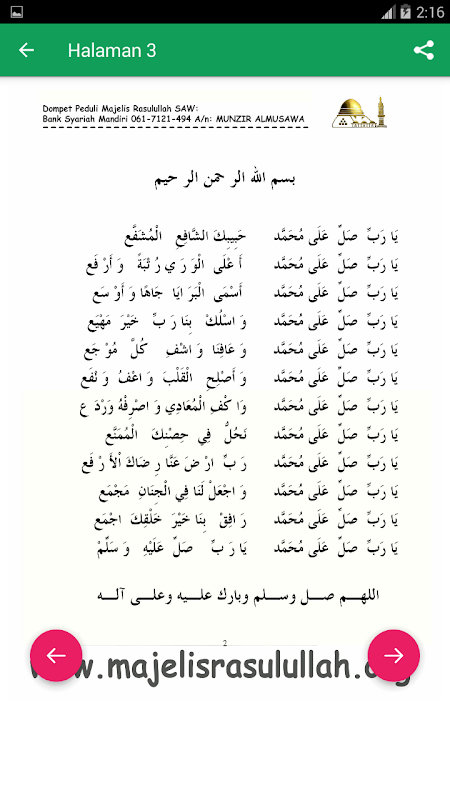 2:16
Halaman 3
Dompet Peduli Majelis Rasulullah SAW:
Bank Syariah Mandiri 061-7121-494 A/n: MUNZIR ALMUSAWA
بسم الله الر حمن الر حيم
يَا رَبِّ صَلِّ عَلَى مُحَمَّد حَبِيبِكَ الشَّافِعِ الْمُشَفَّع
يَا رَبِّ صَلِّ عَلَى مُحَمَّد أَ عْلَى الْوَ رَ ي رُ تْبَةً وَ أَرْ فَع
يَا رَبِّ صَلِّ عَلَى مُحَمَّد أَسْمَى الْبَرَ ايَا جَاهًا وَ أَوْ سَع
يَا رَبِّ صَلِّ عَلَى مُحَمَّد وَ اسْلُكْ بِنَا رَ بِّ خَيْرَ مَهْيَع
يَا رَبِّ صَلِّ عَلَى مُحَمَّد وَ عَافِنَا وَ اشْفِ كُلَّ مُوْ جَع
يَا رَبِّ صَلِّ عَلَى مُحَمَّد وَ أَصْلِحِ الْقَلْبَ وَ اعْفُ وَ نْفَع
يَا رَبِّ صَلِّ عَلَى مُحَمَّد وَا كْفِ الْمُعَادِي وَ اصْرِفْهُ وَرْدَ ع
يَا رَبِّ صَلِّ عَلَى مُحَمَّد نَحُلُّ فِي حِصْنِكَ الْمُمَنَّع
يَا رَبِّ صَلِّ عَلَى مُحَمَّد رَ بِّ ارْ ضَ عَنَّا رِ ضَاكَ الْأَ رْ فَع
يَا رَبِّ صَلِّ عَلَى مُحَمَّد وَ اجْعَلْ لَنَا فِي الْجِنَانِ مَجْمَع
يَا رَبِّ صَلِّ عَلَى مُحَمَّد رَ افِقْ بِنَا خَيْرَ خَلْقِكَ اجْمَع
يَا رَبِّ صَلِّ عَلَى مُحَمَّد يَا رَ بِّ صَلِّ عَلَيْهِ وَ سَلِّمْ
اللهـم صـل وسـلم وبارك علـيه وعلـى آلـه
2
www.majelisrasulullah.org